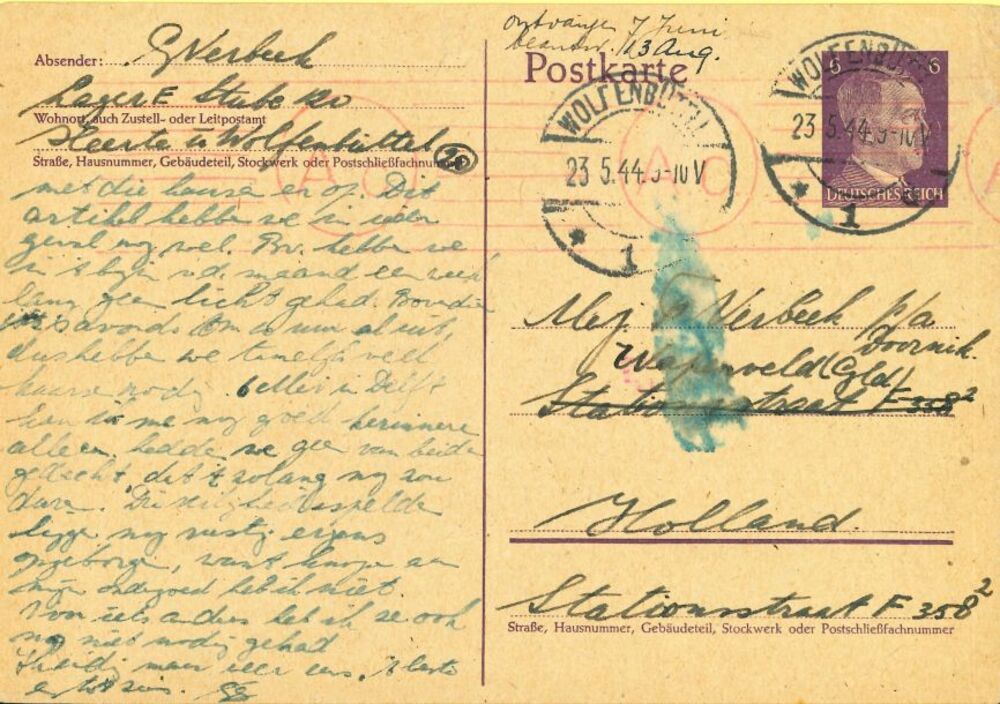 ontvangen 7 Juni
beantw. 13 Aug.
Absender: G Verbeek
Lager E Stube 120
Wohnort, auch Zustell- oder Leitpostamt
Heerte ü Wolfenbüttel
Straße, Hausnummer, Gebäudeteil, Stockwerk oder Postschließfachnummer
met die er op. Dit
artikel hebben we in ieder
geval nog wel. Bv. hebben we
in 't begin v.d. maand een week
lang geen licht gehad. Bovendien
is 's avonds om 10 uur al uit
dus hebben we tamelijk veel
kaarsen nodig. in Delft
kan ik me nog goed herinneren
alleen hadden we geen van beiden
gedacht, dat 't solang nog zou
duren. De veiligheidsspelden
liggen nog rustig ergens
opgeborgen, want knopen aan
mijn ondergoed heb ik niet.
Voor iets anders heb ik ze ook
nog niet nodig gehad
maar weer eens. 't beste
en tot ziens.
Postkarte
WOLFENBÜTTEL
23 5.44.9-10V
* 1
WOLFENBÜTTEL
23 5.44.9-10V
* 1
6 6
DEUTSCHES REICH
Ac
Ac
Mej. Verbeek p/a
Doornik.
(Gld)
Stationsstraat F 358²
Holland.
Stationsstraat F 358²
Straße, Hausnummer, Gebäudeteil, Stockwerk oder Postschließfachnummer